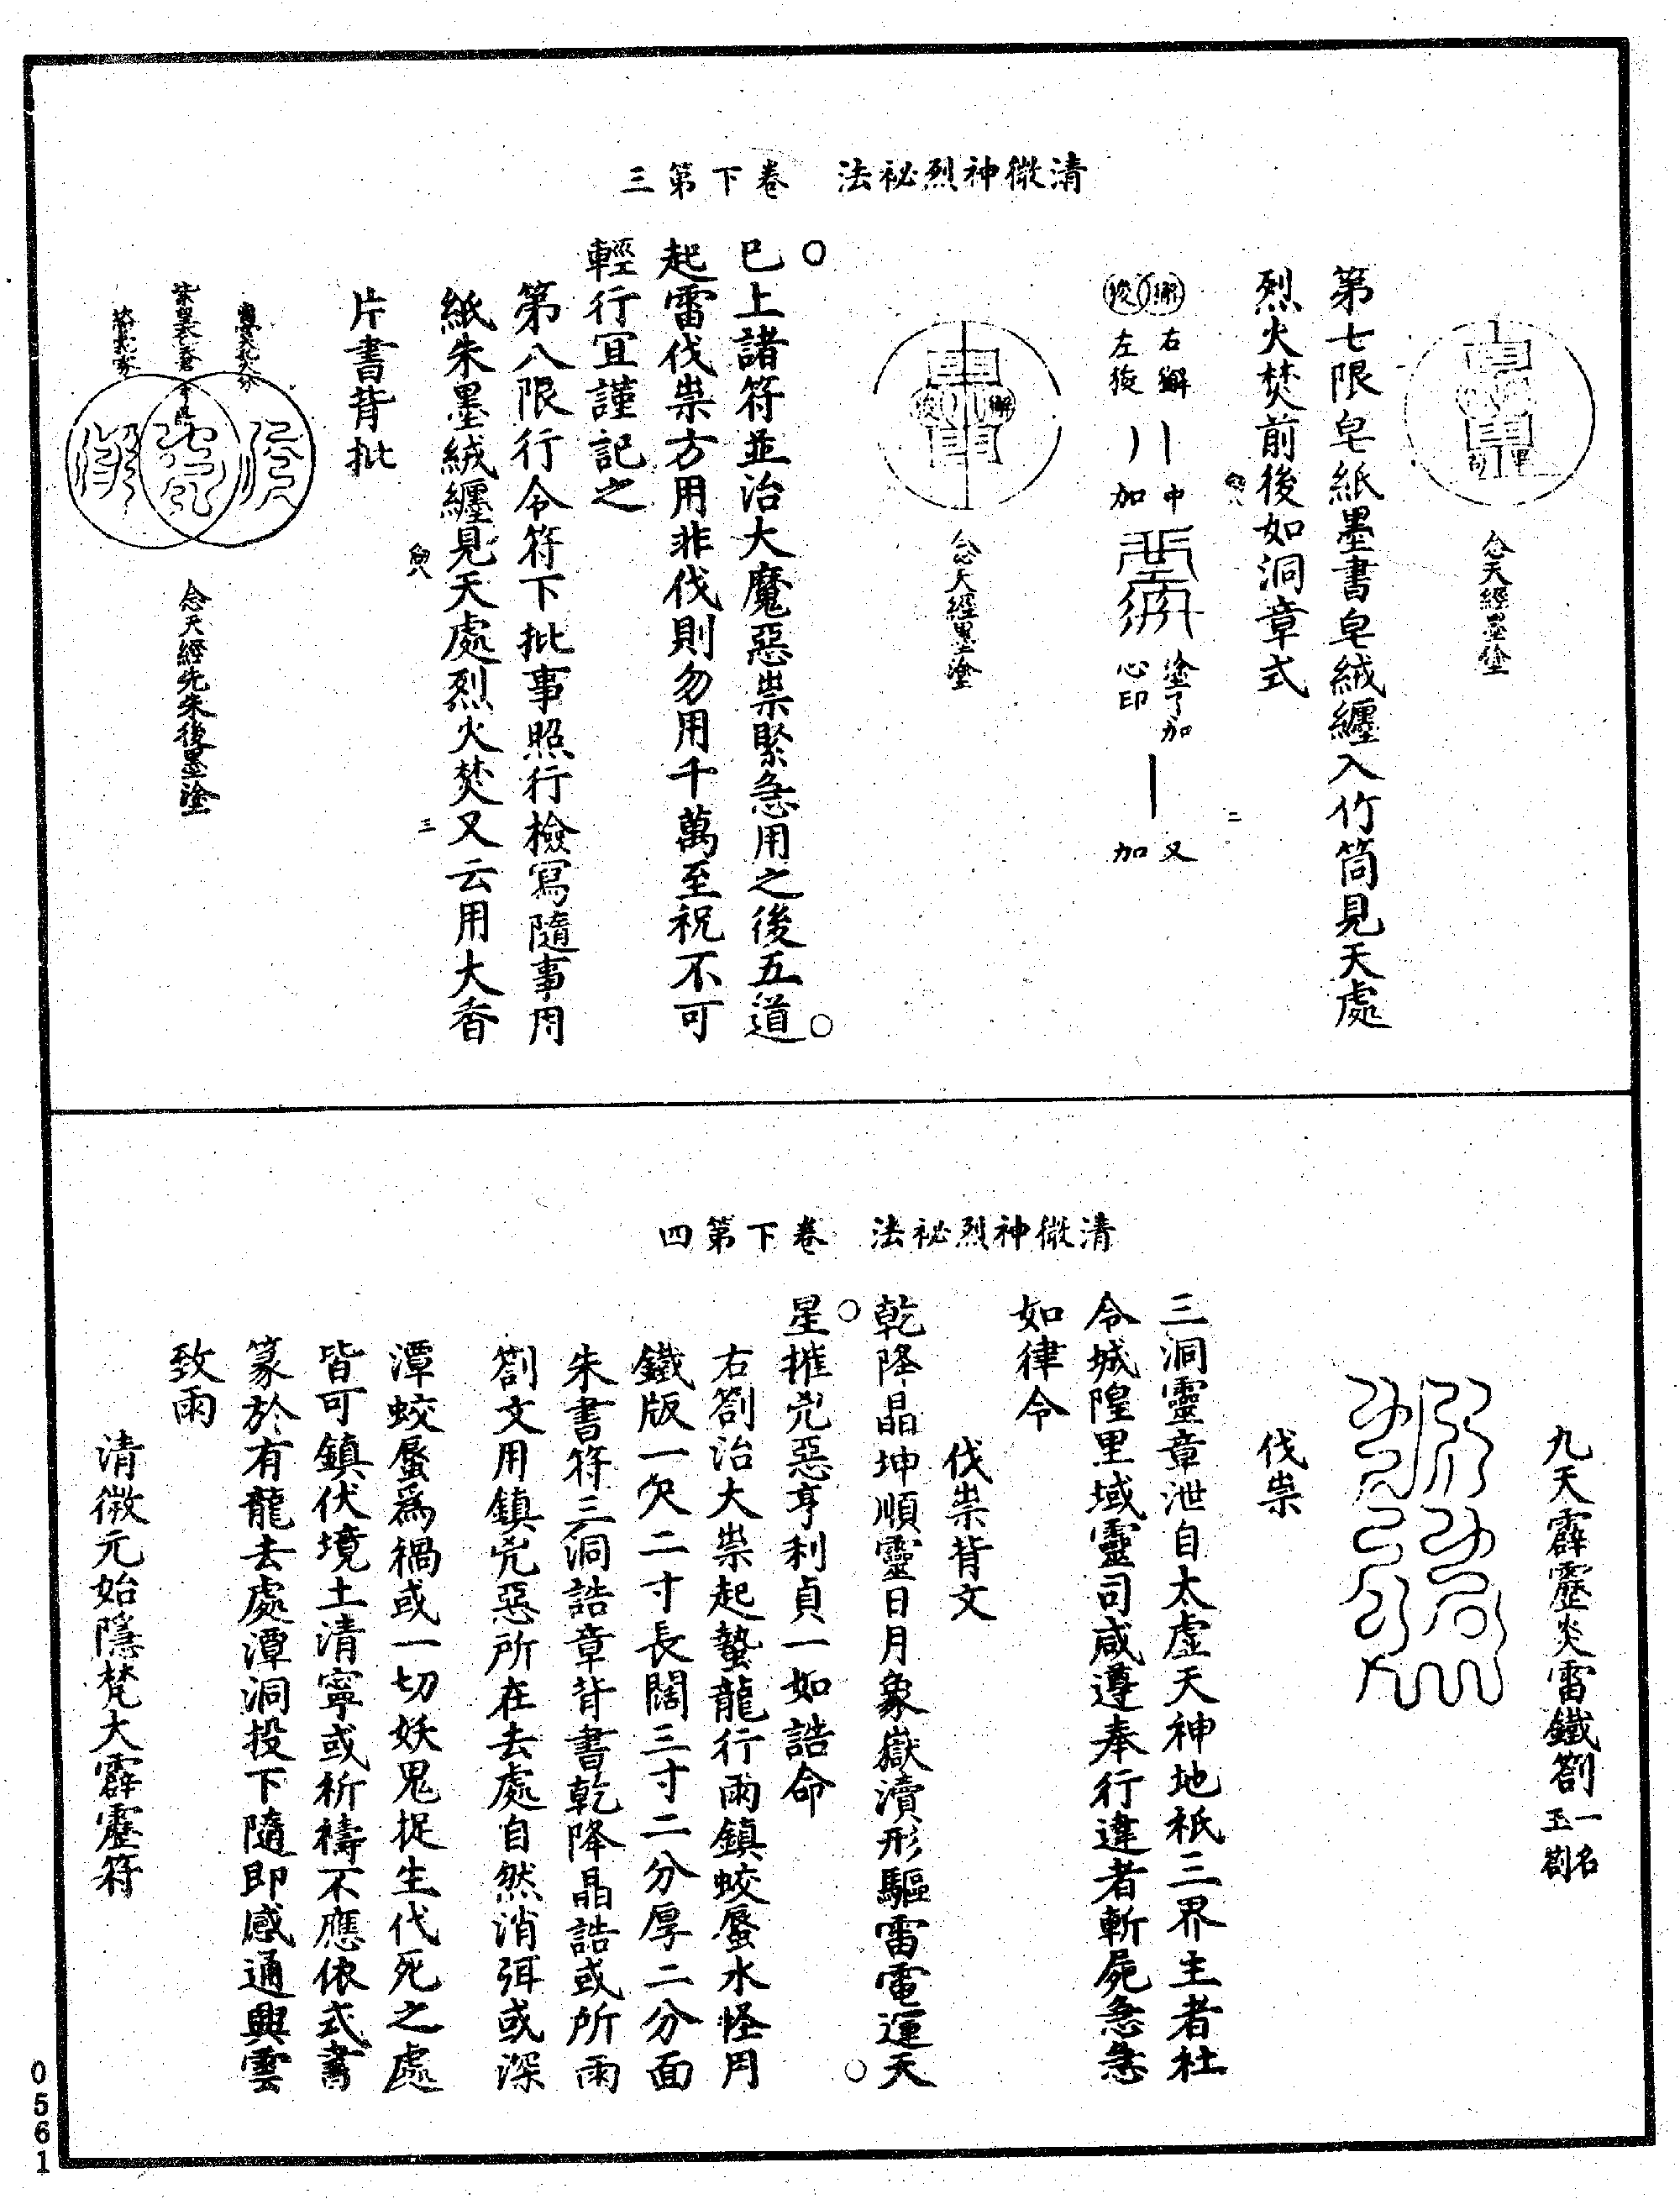 清微神烈祕法　卷下第三
念天經墨塗
第七限皂紙墨書皂絨纏入竹筒見天處
烈火焚前後如洞章式
二
右獬　中　塗了加　又
左狻　加　心印　加
念天經墨塗
巳上諸符並治大魔惡祟緊急用之後五道
起雷伐祟方用非伐則勿用千萬至祝不可
輕行宜謹記之
第八限行令符下批事照行檢寫隨事用
紙朱墨絨纏見天處烈火焚又云用大香
三
片書背批
念天經先朱後墨塗
清微神烈祕法　卷下第四
九天霹靂炎雷鐵劄一名玉劄
伐祟
三洞靈章泄自太虛天神地祇三界主者社
令城隍里域靈司咸遵奉行違者斬屍急急
如律令
伐祟背文
乾降晶坤順靈日月象嶽瀆形驅雷電運天
星摧兇惡亨利貞一如誥命
右劄治大祟起蟄龍行雨鎮蛟蜃水怪用
鐵版一尺二寸長闊三寸二分厚二分面
朱書符三洞誥章背書乾降晶誥或所雨
劄文用鎮兇惡所在去處自然消弭或深
潭蛟蜃爲禍或一切妖鬼捉生代死之處
皆可鎮伏境土清寧或祈禱不應依式書
篆於有龍去處潭洞投下隨即感通興雲
致雨
清微元始隱梵大霹靂符
0561